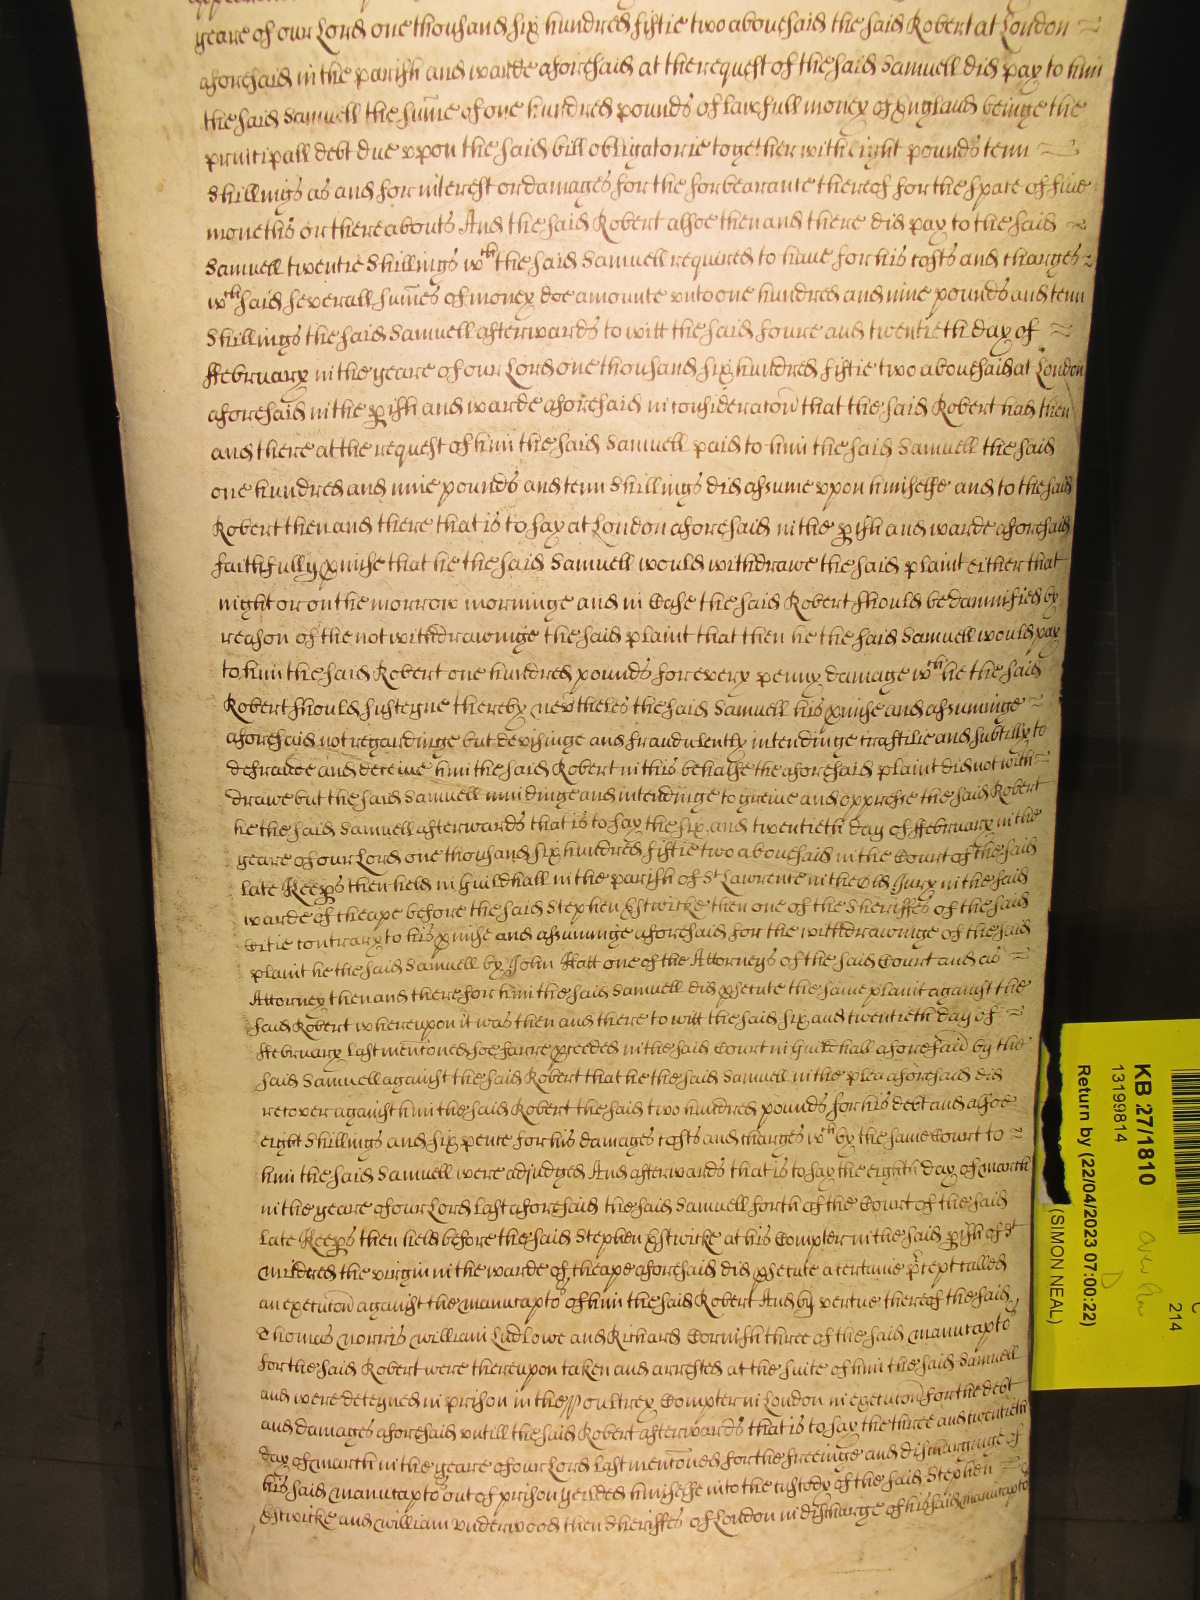 yeare of our Lord one thousand six hundred fiftie two abovesaid the said Robert at London
aforesaid in the parish and warde aforesaid at the request of the said Samuell did pay to him
the said Samuell the sume of one hundred pounds of lawfull money of England beinge the
principall debt due upon the said bill obligatorie together with eight pounds tenn
shillings as and for interest or damages for the forbearance thereof for the space of five
moneths or thereabouts And the said Robert alsoe then and there did pay to the said
Samuell twentie shillings wch the said Samuell required to have for his costs and charges
wch said severall sumes of money doe amounte unto one hundred and nine pounds and tenn
shillings the said Samuell afterwards to witt the said foure and twentieth day of
ffebruary in the yeare of our Lord one thousand six hundred fiftie two abovesaid at London
aforesaid in the pish and warde aforesaid in consideracon that the said Robert had then
and there at the request of him the said Samuell paid to him the said Samuell the said
one hundred and nine pounds and tenn shillings did assume upon himselfe and to the said
Robert then and there that is to say at London aforesaid in the pish and warde aforesaid
faithfully pmise that he the said Samuell would withdrawe the said plaint either that
night or on the morrow morninge and in Case the said Robert should be damnified by
reason of the not withdrawinge the said plaint that then he the said Samuell would pay
to him the said Robert one hundred pounds for every penny damage wch he the said
Robert should susteyne thereby nevtheles the said Samuell his pmise and assuminge
aforesaid not regardinge but devisinge and fraudulently intendinge craftilie and subtilly to
defraude and deceive him the said Robert in this behalfe the aforesaid plaint did not with
drawe but the said Samuell mindinge and intendinge to greive and oppresse the said Robert
he the said Samuell afterwards that is to say the six and twentieth day of ffebruary in the
yeare of our Lord one thousand six hundred fiftie two abovesaid in the Court of the said
late Keeps then held in Guildhall in the parish of St Lawrence in the Old Jury in the said
warde of Cheape before the said Stephen Estwicke then one of the Sheriffes of the said
Citie contrary to his pmise and assuminge aforesaid for the withdrawinge of the said
plaint he the said Samuell by John Hatt one of the Attorneys of the said Court and as
Attorney then and there for him the said Samuell did psecute the same plaint against the
said Robert whereupon it was then and there to witt the said six and twentieth day of
ffebruary last menconed soe farre pceeded in the said Court in Guildhall aforesaid by the
said Samuell against the said Robert that he the said Samuell in the plea aforesaid did
recover against him the said Robert the said two hundred pounds for his debt and alsoe
eight shillings and six pence for his damages costs and charges wch by the same Court to
him the said Samuell were adjudged And afterwards that is to say the eighth day of March
in the yeare of our Lord last aforesaid the said Samuell forth of the Court of the said
late Keeps then held before the said Stephen Estwicke at his Compter in the said pish of St
Mildred the virgin in the warde of Cheape aforesaid did psecute a certaine pcept called
an execucon against the manucapto of him the said Robert And by vertue thereof the said
Thomas Norris William Ludlowe and Richard Cornish three of the said manucapto
for the said Robert were thereupon taken and arrested at the suite of him the said Samuell
and were deteyned in prison in the Poultrey Compter in London in execucon for the debt
and damages aforesaid untill the said Robert afterwards that is to say the three and twentieth
day of March in the yeare of our Lord last menconed for the freeinge and discharginge of
his said manucapto out of prison yeilded himselfe into the custody of the said Stephen
Estwicke and William Underwood then Sheriffes of London in discharge of his said manucapto
KB 27/1810
13199814
Return by (22/04/2023 07:00:22)
(SIMON NEAL)
C
214
D